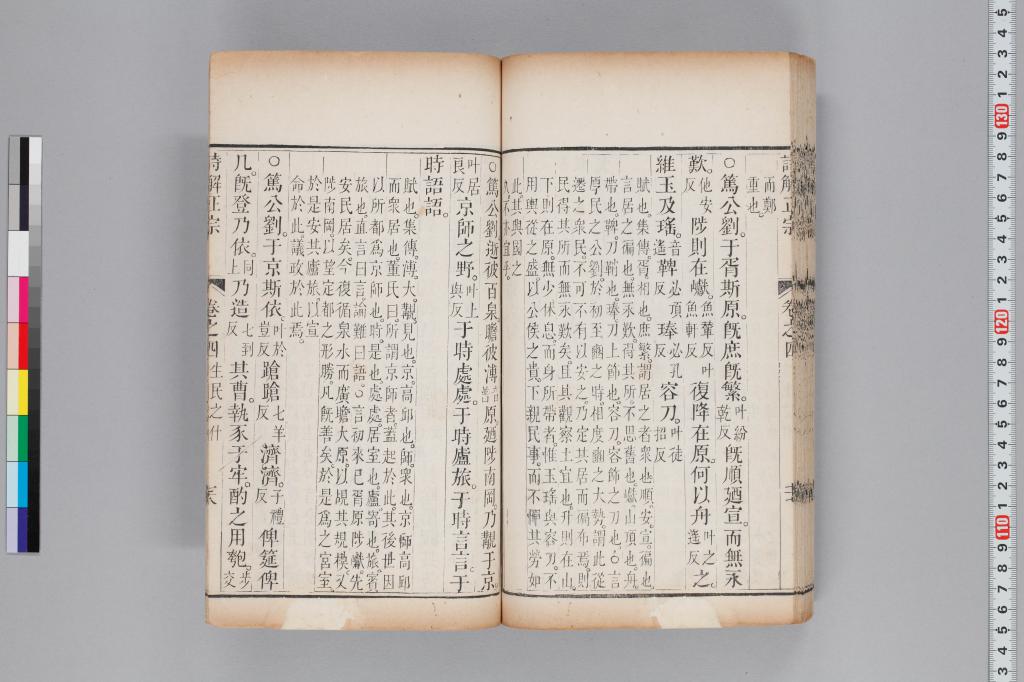 詩解正宗
卷之四
而鄭
重也。
○篤公劉。于胥斯原。旣庶旣繁。叶紛乾反旣順廼宣。而無永
歎。他安反陟則在巘。魚輦反叶魚軒反復降在原。何以舟叶之遙反之。
維玉及瑤。音遙鞞必頂反琫必孔反容刀。叶徒招反
賦也。集傳。胥相也。庶繁。謂居之者衆也。順安。宣徧也
言居之徧也。無永歎。得其所不思舊也。巘山頂也。舟
帶也。鞞刀鞘也。琫刀上飾也。容刀。容飾之刀也。○言
厚民之公劉。於初至豳之時。相度豳之大勢。謂此從
遷之衆民。不可不有以安之。乃定其居而徧布焉。則
民得其所而無永歎矣。且其觀察土宜也。升則在山
下則在原。無少休息。而身所帶者。惟玉瑤與容刀。不
用輿從之盛。以公侯之貴。下親民事。而不憚其勞如
此。其興國之
○篤公劉。逝彼百泉。瞻彼溥音普原。廼陟南岡。乃覯于京
叶居良反京師之野。叶上與反于時處處。于時廬旅。于時言言。于
時語語。
賦也。集傳。溥。大。覯見也。京。高邱也。師。衆也。京師高邱
而衆居也。董氏曰。所謂京師者。蓋起於此。其後世因
以所都爲京師也。時。是也。處處。居室也。廬寄也。旅賓
旅也。直言曰言。論難曰語。○言初來已胥原陟巘。先
安民居矣。今復循泉水而廣瞻大原。以規其規模。又
陟南岡。以望定都之形勝。凡旣善矣。於是爲之宮室
於是安其廬旅。以宣
命於此。議政於此焉。
○篤公劉。于京斯依。叶於豈反蹌蹌七羊反濟濟。子禮反俾筵俾
几。旣登乃依。同上乃造七到反其曹。執豕于牢。酌之用匏。叶交
詩解正宗
卷之四
生民之什